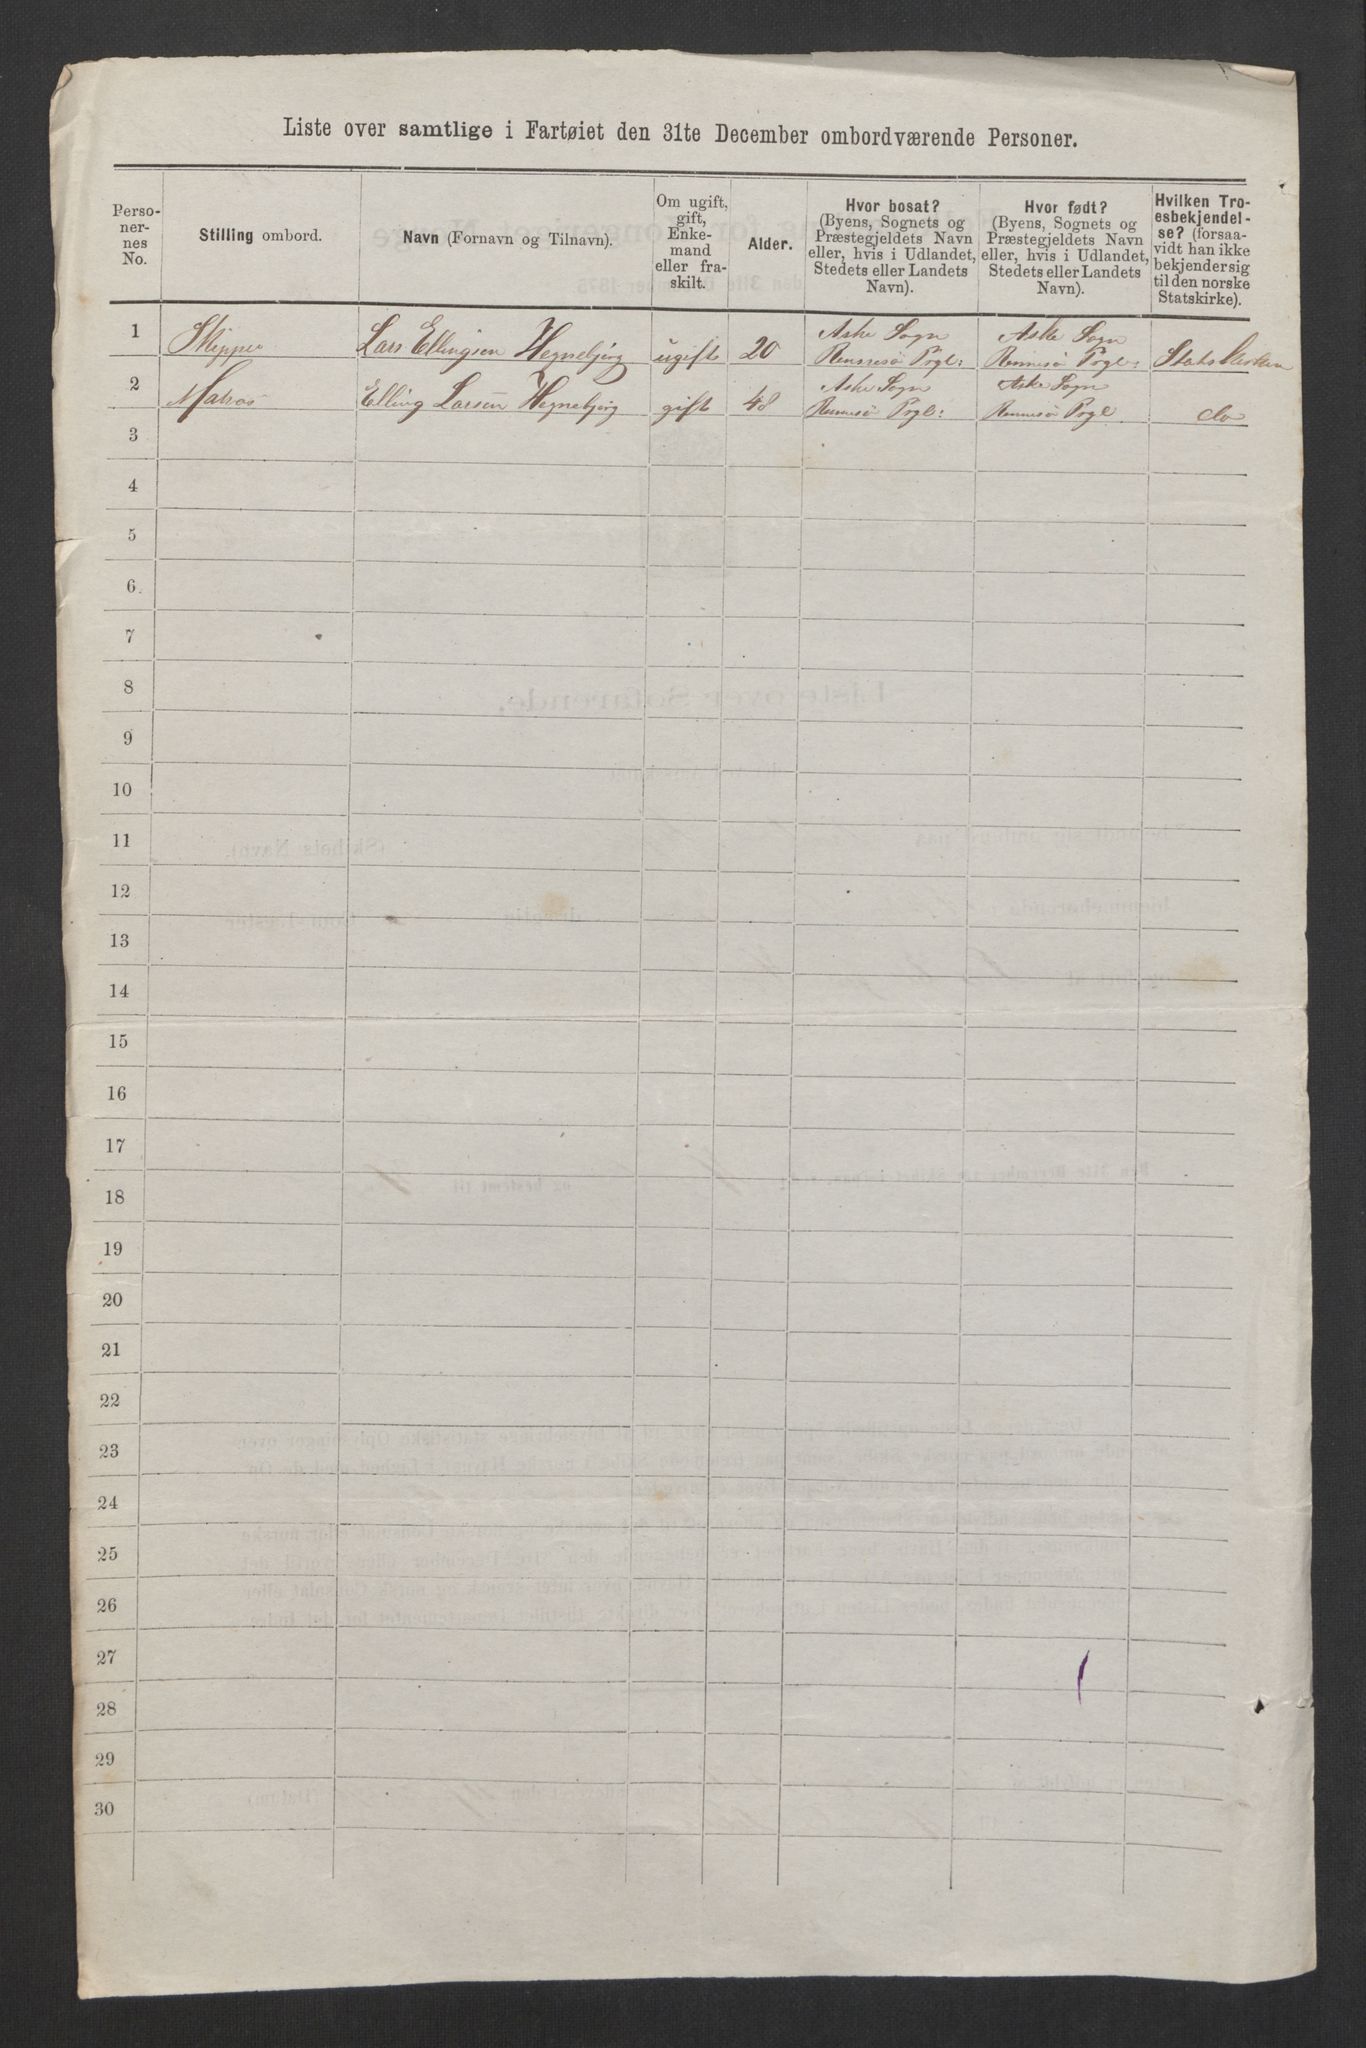 Liste over samtlige i Fartøiet den 31te December ombordværende Personer.
Perso-
ner-
nes
No.
Stilling ombord.
Navn (Fornavn og Tilnavn).
Om ugift,
gift,
Enke-
mand
eller fra-
skilt.
Alder.
Hvor bosat?
(Byens, Sognets og
Præstegjeldets Navn
eller, hvis i Udlandet,
Stedets eller Landets
Navn).
Hvor født?
(Byens, Sognets og
Præstegjeldets Navn
eller, hvis i Udlandet,
Stedets eller Landets
Navn).
Hvilken Tro-
esbekjendel-
se? (forsaa-
vidt han ikke
bekjender sig
til den norske
Statskirke).
1 Skipper Lars Ellingsen Hegnebjörg ugift 20 Aske Sogn Rennesö Prgl: Aske Sogn Rennesö Prgl: Statskirken
2 Matros Elling Larsen Hegnebjörg gift 48 Aske Sogn Rennesö Prgl: Aske Sogn Rennesö Prgl do
3
4
5
6
7
8
9
10
11
12
13
14
15
16
17
18
19
20
21
22
23
24
25
26
27
28
29
30